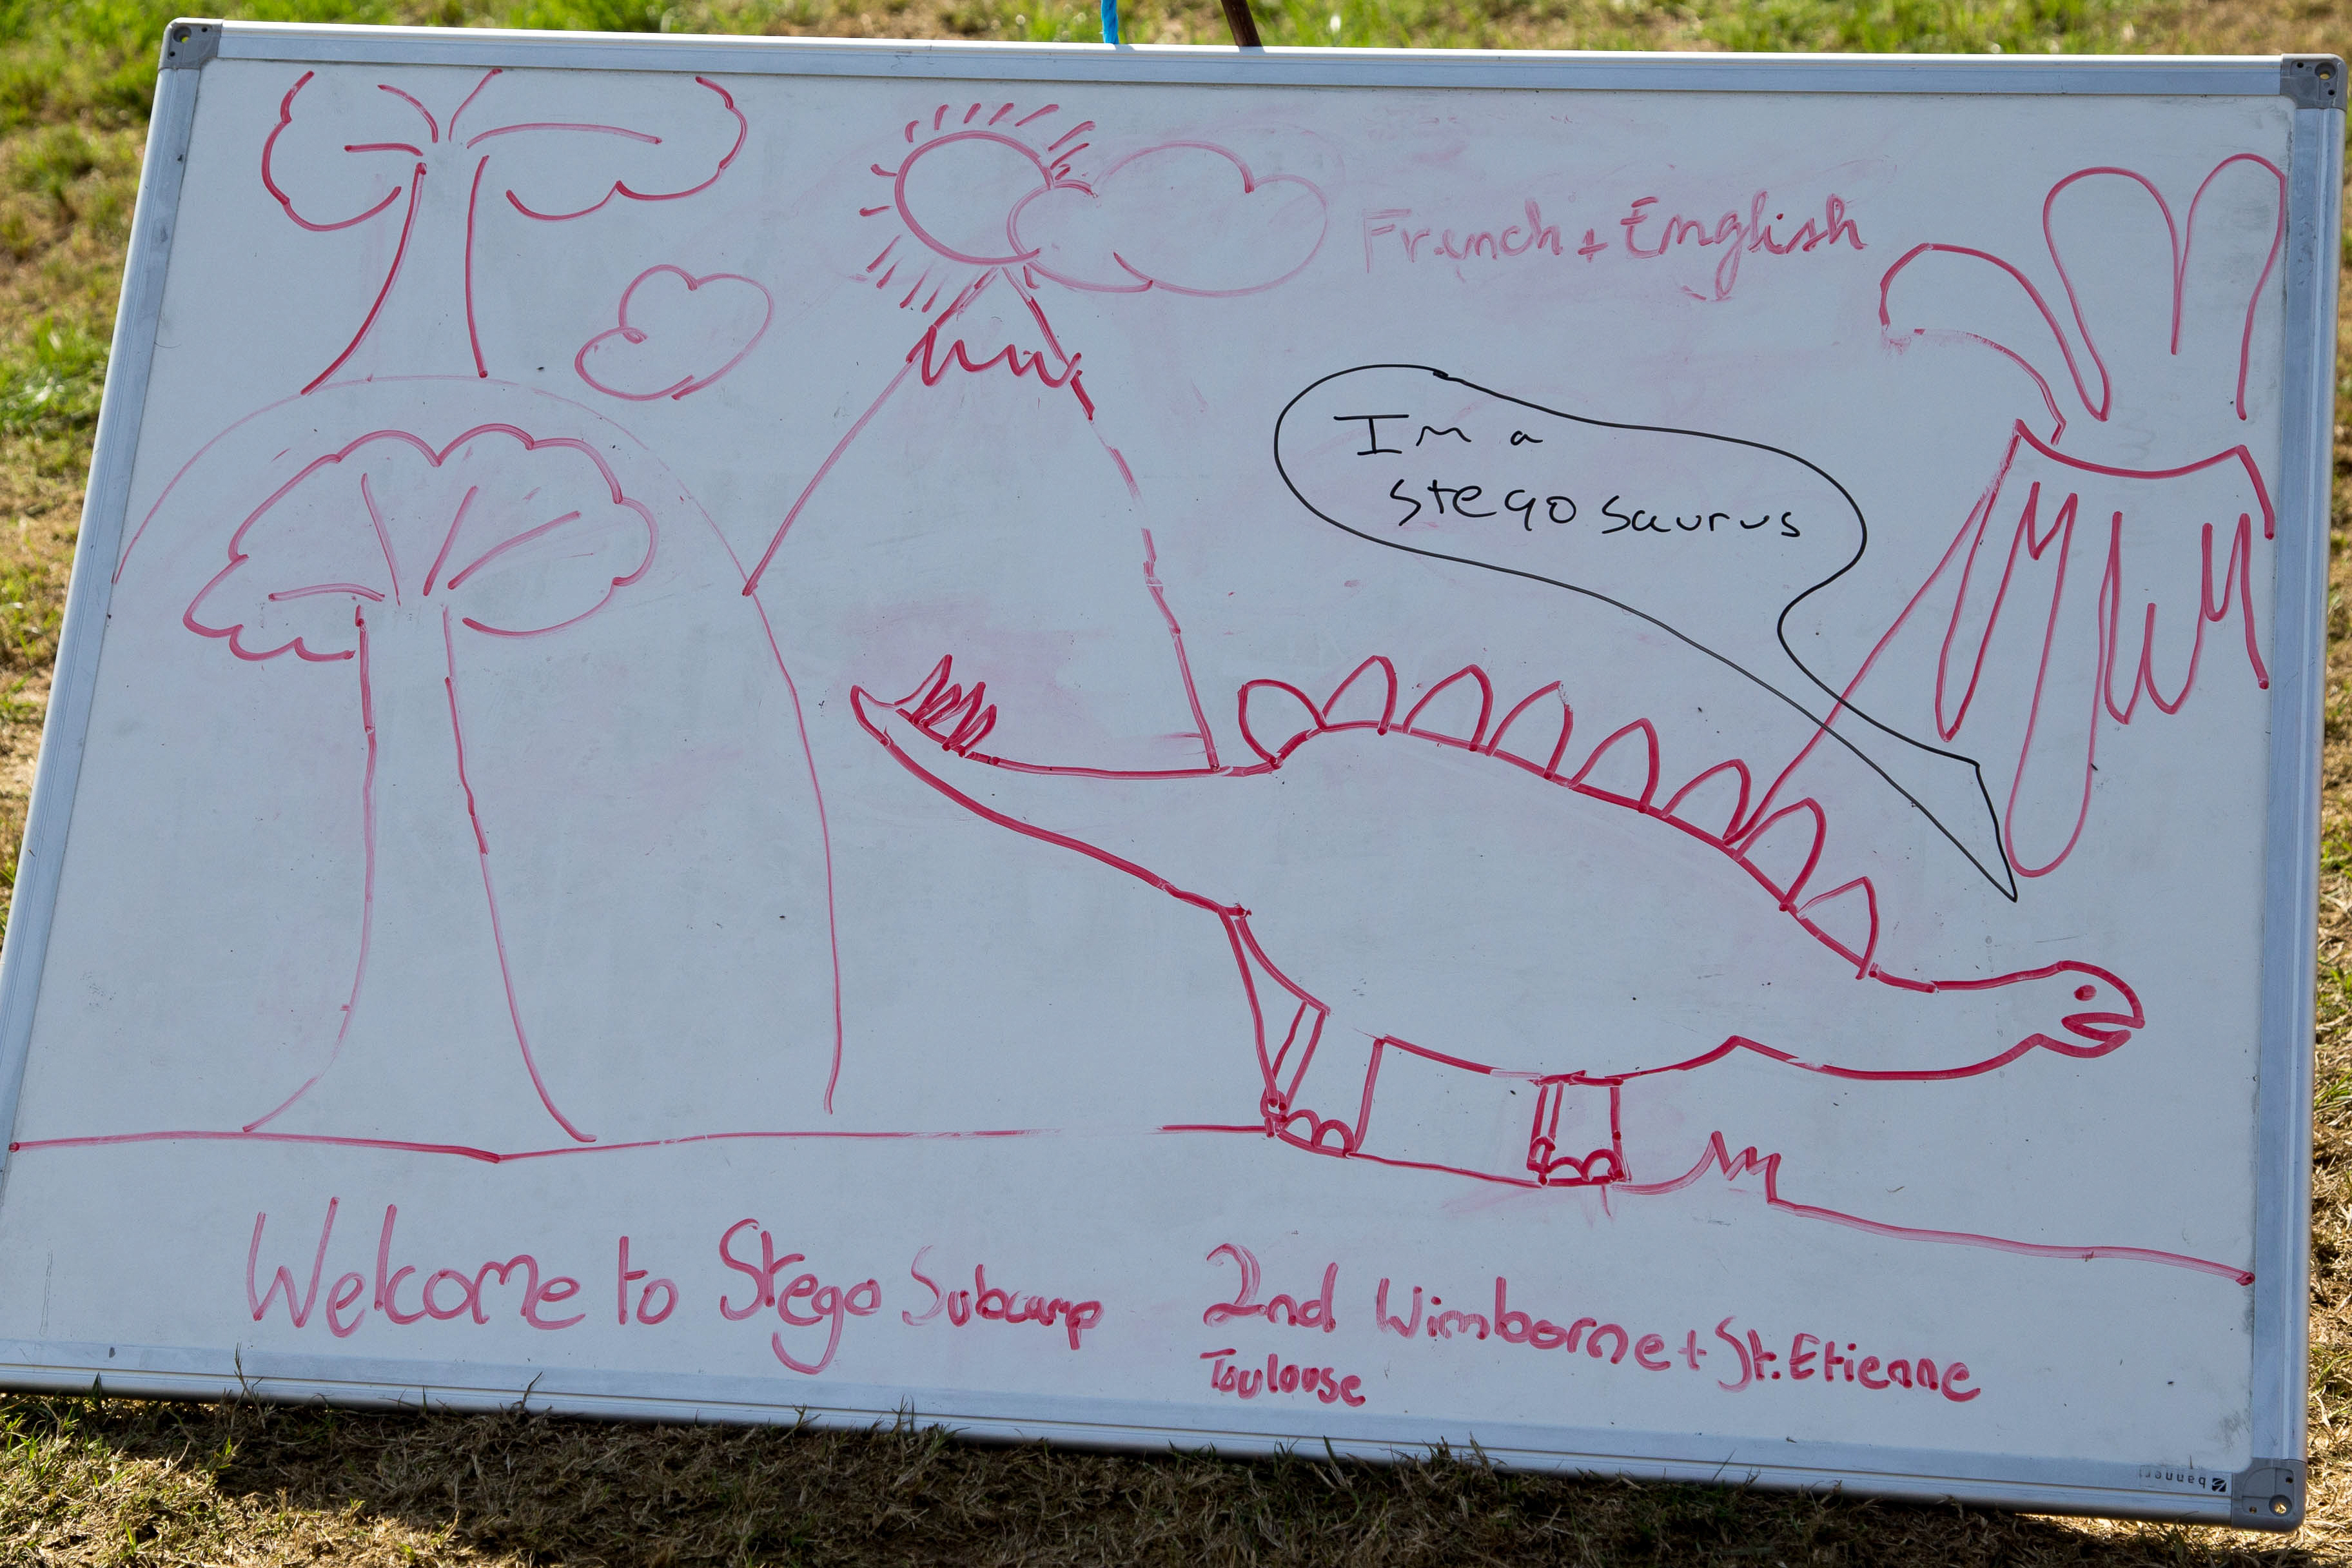 French + English
Im a
stegosaurus
Welcome to Stego Subcamp
2nd Wimborne + St. Etienne
Toulouse
banner